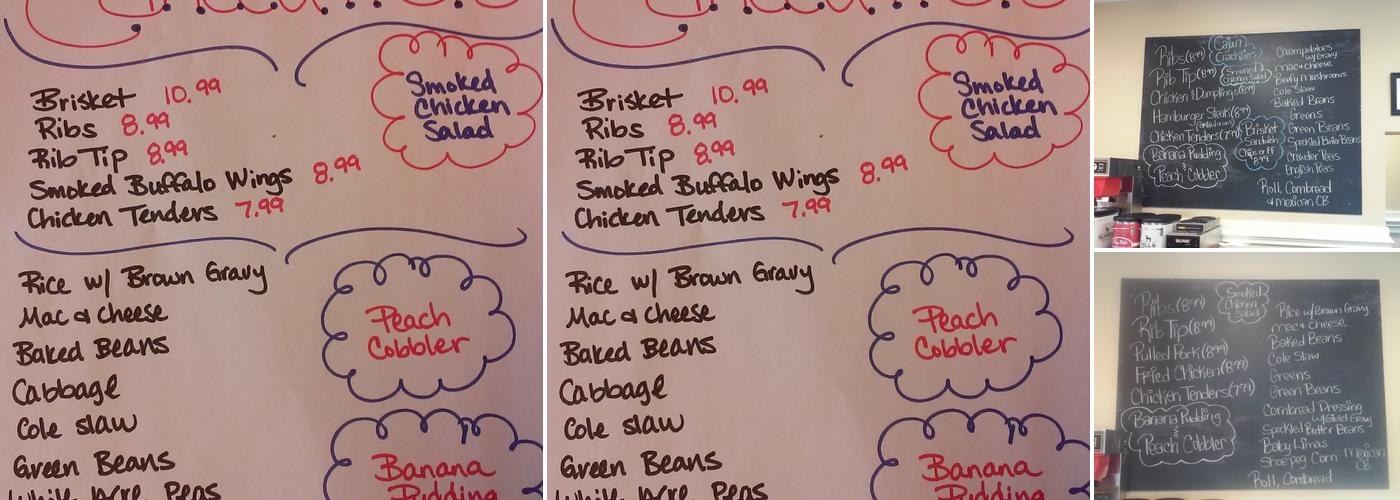 Brisket 10.99
Ribs 8.99
Rib Tip 8.99
Smoked Buffalo Wings 8.99
Chicken Tenders 7.99
Smoked
Chicken
Salad
Rice w/ Brown Gravy
Mac & cheese
Baked Beans
Cabbage
Cole slaw
Green Beans
Peach
Cobbler
Banana
Pudding
Brisket 10.99
Ribs 8.99
Rib Tip 8.99
Smoked Buffalo Wings 8.99
Chicken Tenders 7.99
Smoked
Chicken
Salad
Rice w/ Brown Gravy
Mac & cheese
Baked Beans
Cabbage
Cole slaw
Green Beans
Peach
Cobbler
Banana
Pudding
Ribs (8.99)
Rib Tip (8.99)
Chicken & Dumplings (8.99)
Hamburger Steak (8.99)
Chicken Tenders (7.99)
Banana Pudding
&
Peach Cobbler
Cajun
Cracklins
Smoked
Chicken Salad
Brisket
Sandwich
Chips or FF
8.99
Creampotatoes
w/ Gravy
mac & cheese
Beefy mushrooms
Cole Slaw
Baked Beans
Greens
Green Beans
Speckled Butter Beans
Crowder Peas
English Peas
Roll, Cornbread
& mexican CB
Ribs (8.99)
Rib Tip (8.99)
Pulled Pork (8.99)
Fried Chicken (8.99)
Chicken Tenders (7.99)
Banana Pudding
&
Peach Cobbler
Smoked
Chicken
Salad
Rice w/ Brown Gravy
mac & cheese
Baked Beans
Cole Slaw
Greens
Green Beans
Cornbread Dressing
w/ Giblet Gravy
Speckled Butter Beans
Baby Limas
Shoepeg Corn
Roll, Cornbread
Mexican
CB